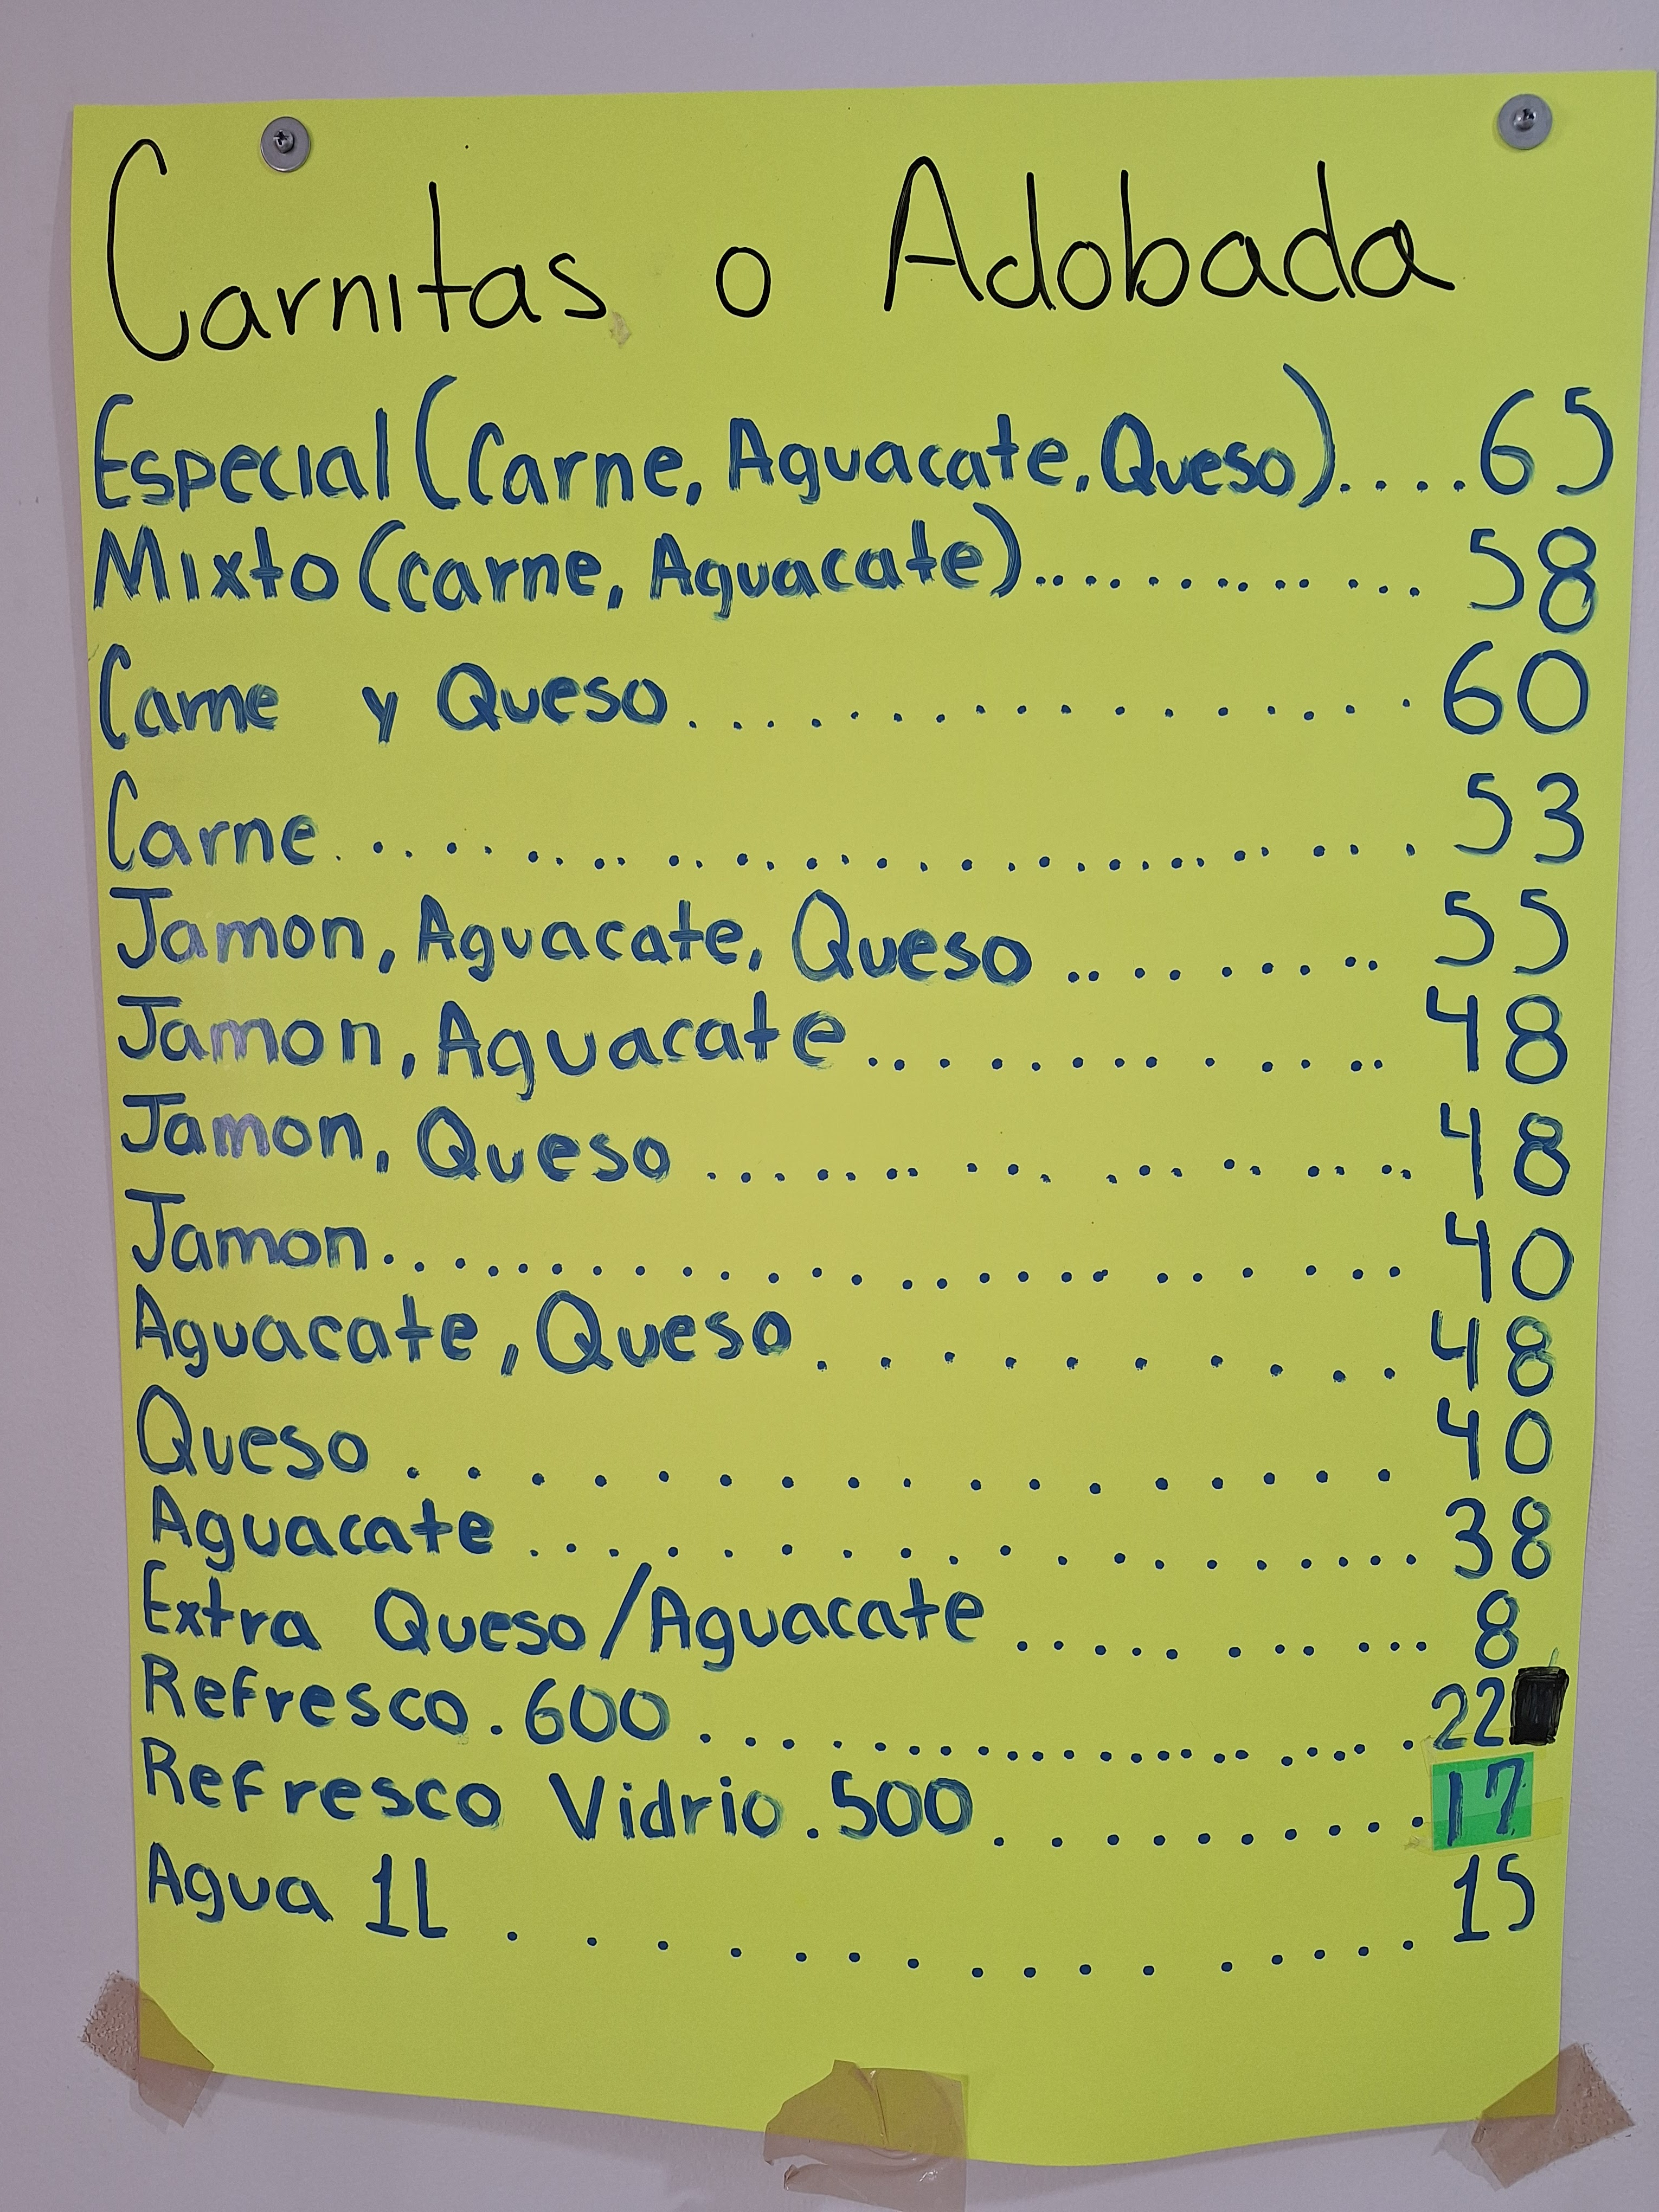 Carnitas o Adobada
Especial (Carne, Aguacate, Queso)....65
Mixto (carne, Aguacate)................58
Carne y Queso..................60
Carne..............................53
Jamon, Aguacate, Queso..........55
Jamon, Aguacate.............48
Jamon, Queso...................48
Jamon..........................40
Aguacate, Queso..........48
Queso................40
Aguacate.................38
Extra Queso/Aguacate...........8
Refresco.600....................22
Refresco Vidrio.500...........17
Agua 1L..............15